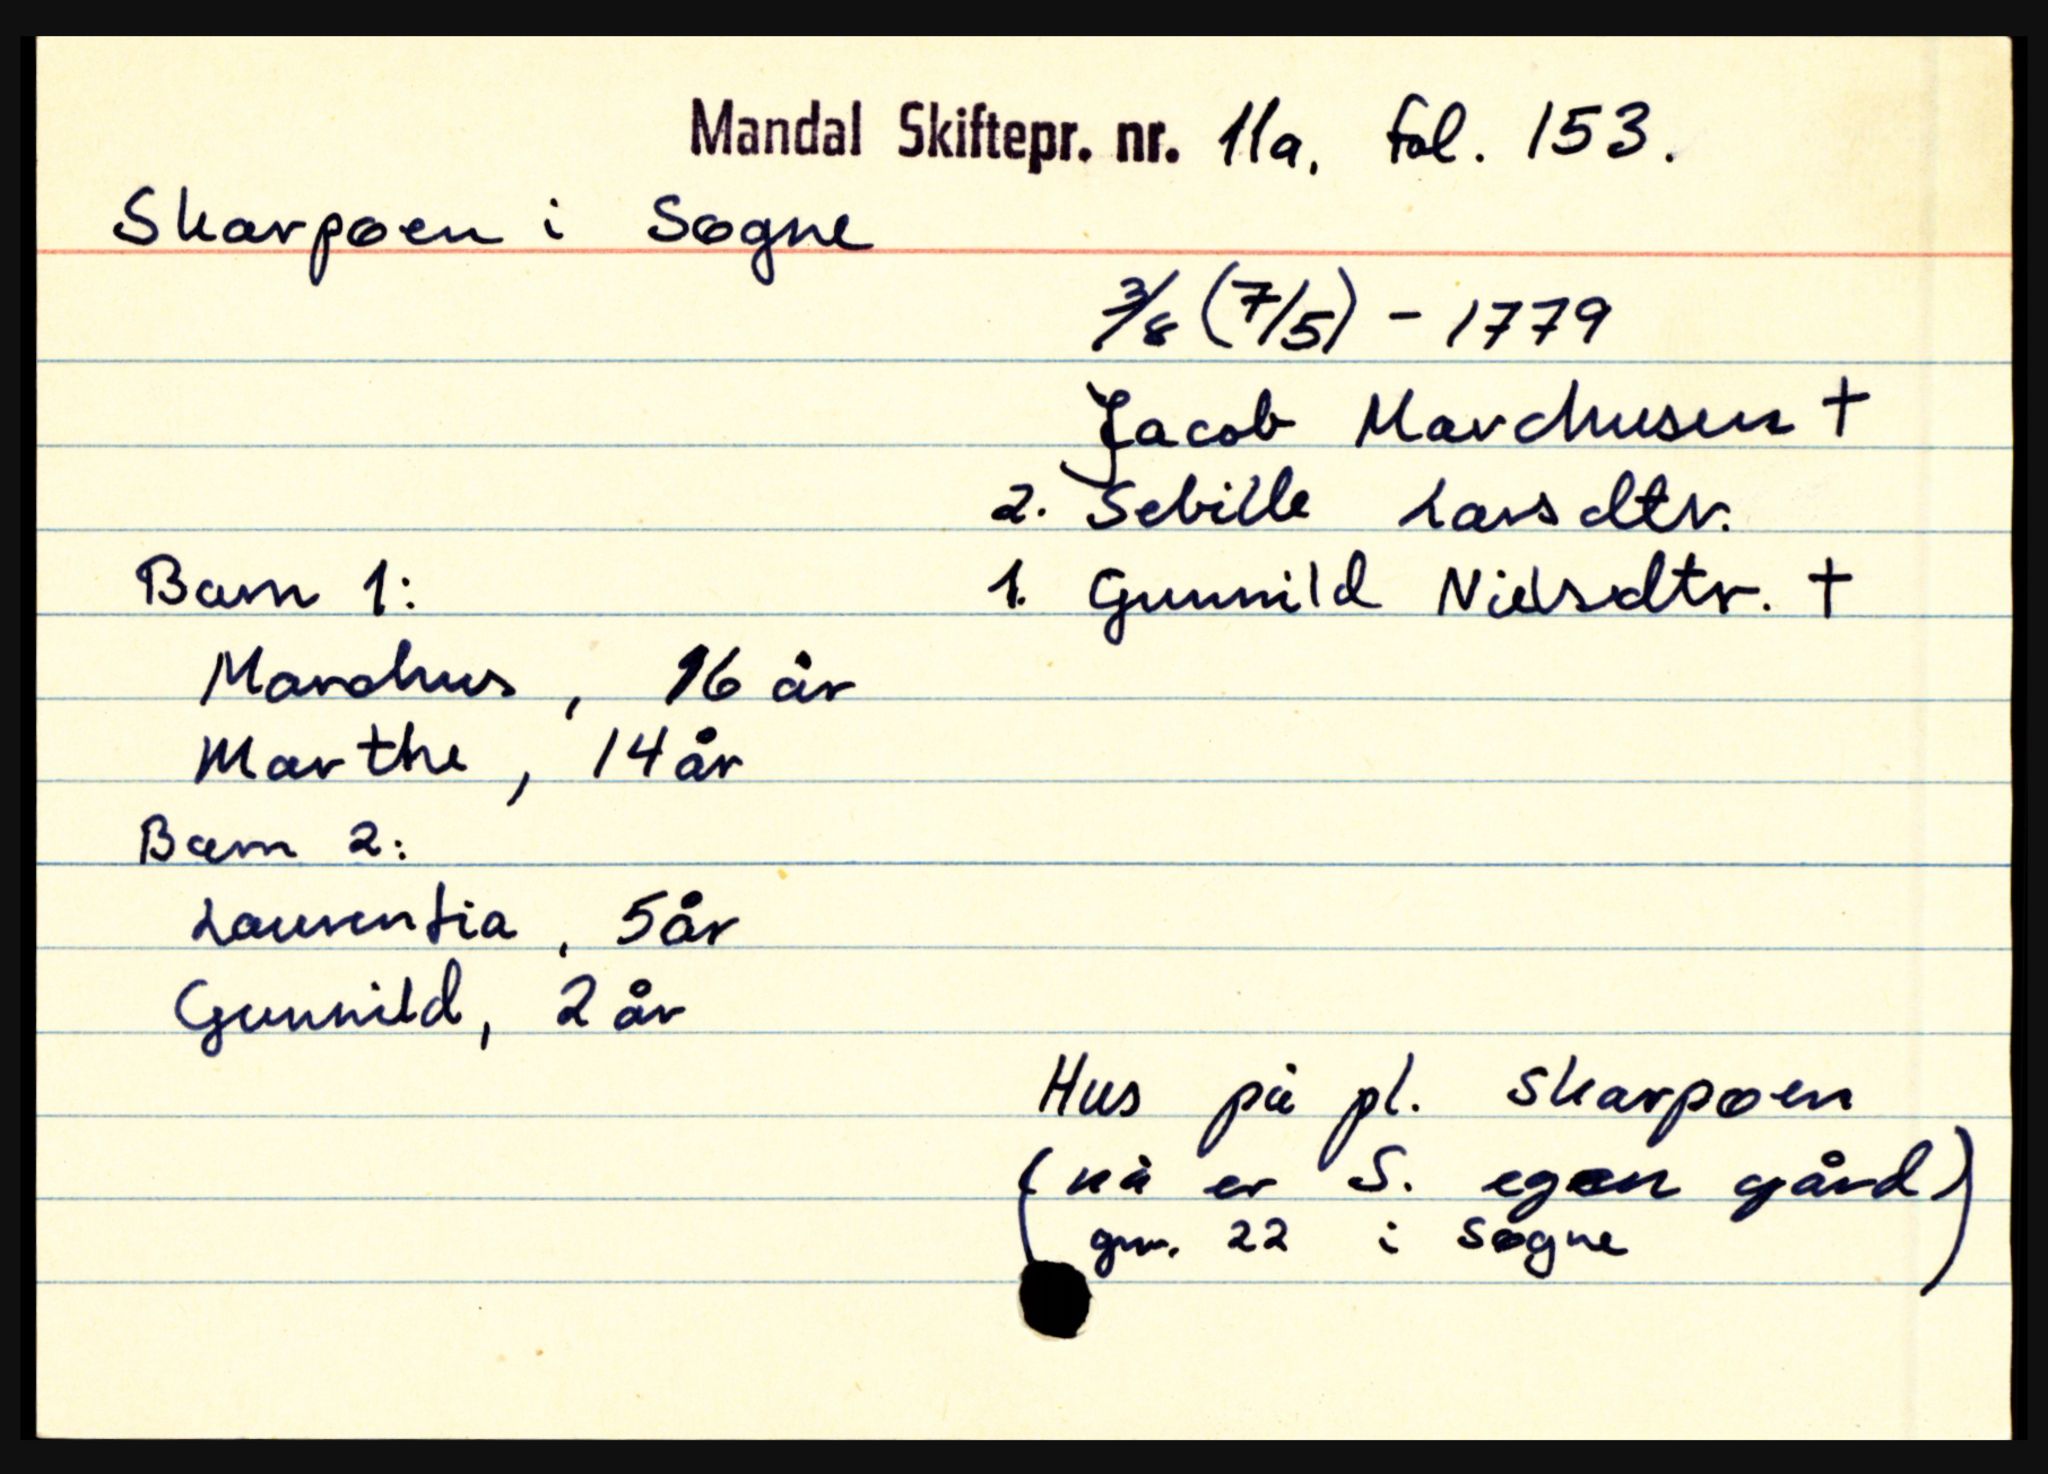 Mandal Skiftepr. nr. 11a. fol. 153.
Skarpøen i Søgne
3/8 (7/5) - 1779
Jacob Marchusen †
2. Sebille Larsdtr.
Barn 1:
1. Gunnild Nielsdtr. †
Marchus, 16 år
Marthe, 14 år
Barn 2:
Laurentia, 5 år
Gunnild, 2 år
Hus på pl. Skarpøen
(nå er S. egen gård)
gnr. 22 i Søgne)